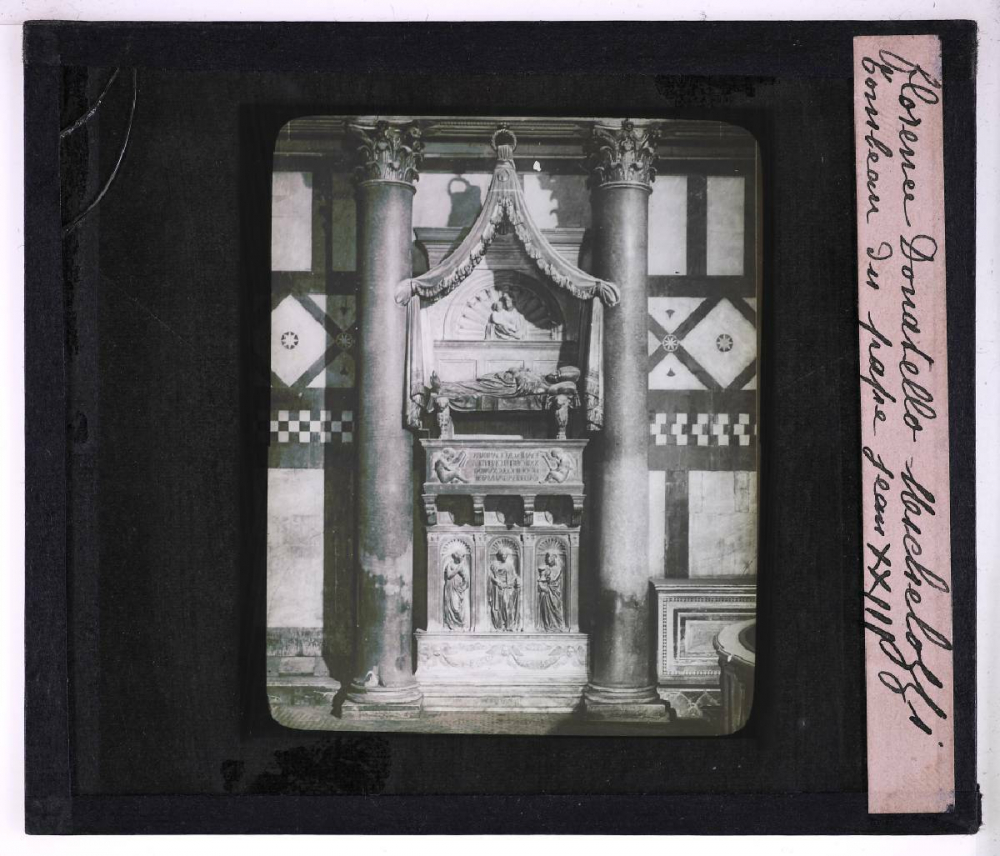 Florence Donatello - Michelozzi
Tombeau du pape Jean XXIII